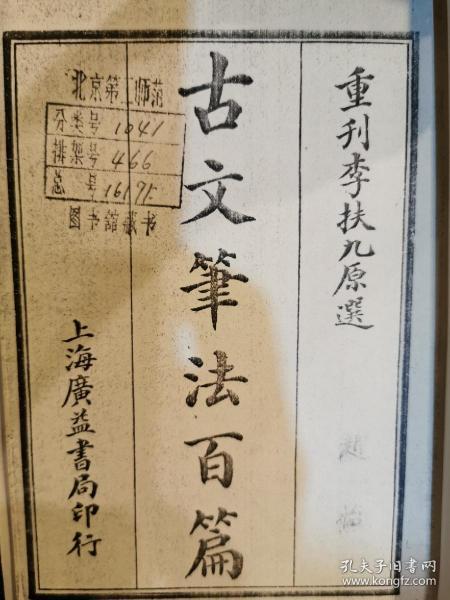 重刊李扶九原選
古文筆法百篇
上海廣益書局印行
北京第二师范
分类号 1041
排架号 466
总 号 16171
图书馆藏书
孔夫子旧书网
www.kongfz.com